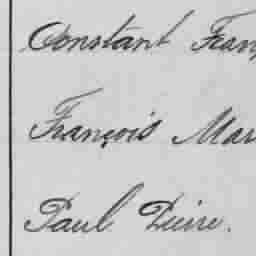 Constant Fran
François Mar
Paul Pierre.